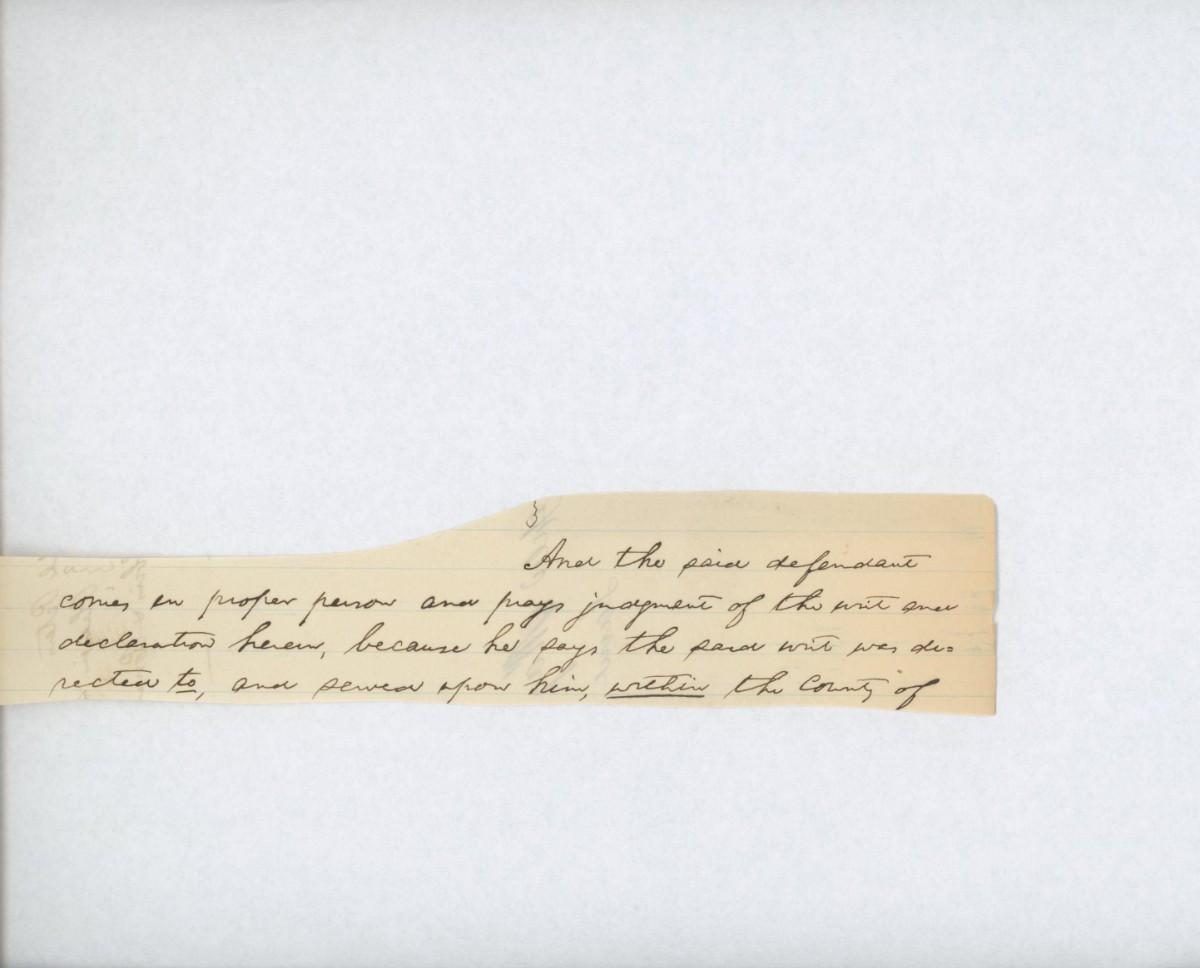 And the said defendant
comes in proper person and prays judgment of the writ and
declaration herein, because he says the said writ was di=
rected to, and served upon him, within the County of